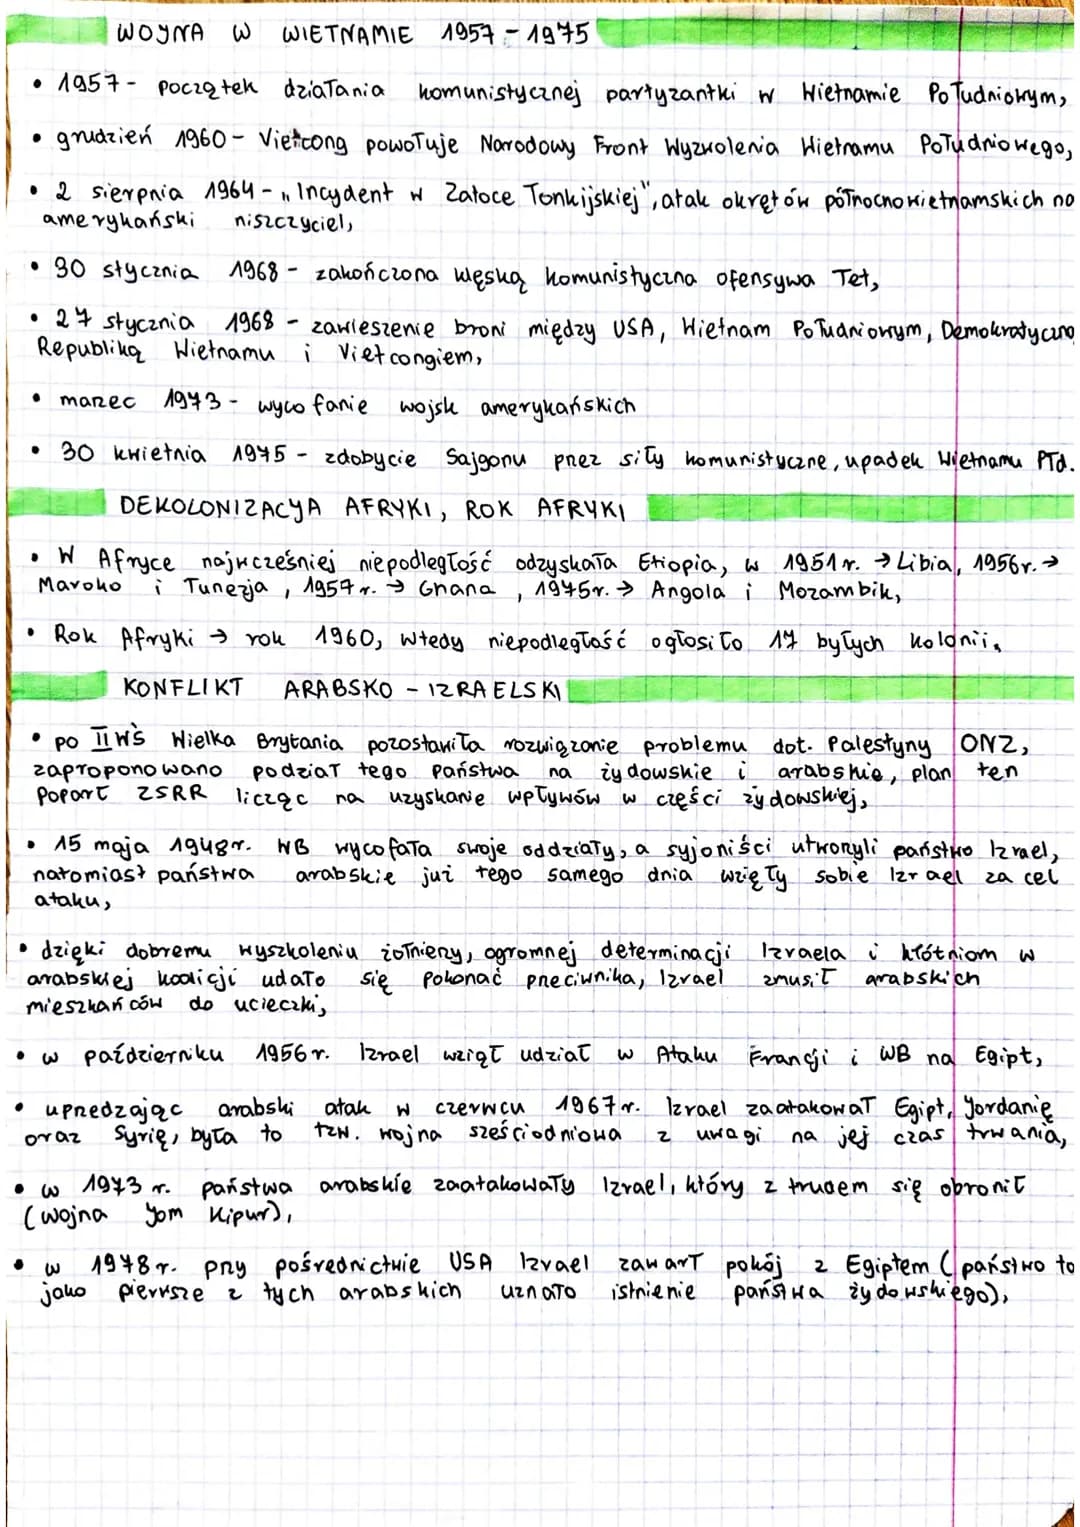 WOJNA W WIETNAMIE 1957 - 1975
• 1957 - początek działania komunistycznej partyzantki w Wietnamie Południowym,
• grudzień 1960 - Vietcong powołuje Narodowy Front Wyzwolenia Wietnamu Południowego,
• 2 sierpnia 1964 - „Incydent w Zatoce Tonkijskiej", atak okrętów północnowietnamskich na
amerykański niszczyciel,
• 30 stycznia 1968 - zakończona klęską komunistyczna ofensywa Tet,
• 27 stycznia 1968 - zawieszenie broni między USA, Wietnam Południowym, Demokratyczną
Republiką Wietnamu i Vietcongiem,
• marzec 1973 - wycofanie wojsk amerykańskich
• 30 kwietnia 1975 - zdobycie Sajgonu przez siły komunistyczne, upadek Wietnamu Płd.
DEKOLONIZACJA AFRYKI, ROK AFRYKI
• W Afryce najwcześniej niepodległość odzyskała Etiopia, w 1951 r. → Libia, 1956r. →
Maroko i Tunezja, 1957 r. → Ghana, 1975r. → Angola i Mozambik,
• Rok Afryki → rok 1960, wtedy niepodległość ogłosiło 17 byłych kolonii,
KONFLIKT ARABSKO - IZRAELSKI
• po II WŚ Wielka Brytania pozostawiła rozwiązanie problemu dot. Palestyny ONZ,
zaproponowano podział tego państwa na żydowskie i arabskie, plan ten
poparł ZSRR licząc na uzyskanie wpływów w części żydowskiej,
• 15 maja 1948r. WB wycofała swoje oddziały, a syjoniści utworzyli państwo Izrael,
natomiast państwa arabskie już tego samego dnia wzięły sobie Izrael za cel
ataku,
• dzięki dobremu wyszkoleniu żołnierzy, ogromnej determinacji Izraela i kłótniom w
arabskiej koalicji udało się pokonać przeciwnika, Izrael zmusił arabskich
mieszkańców do ucieczki,
• w październiku 1956 r. Izrael wziął udział w Ataku Francji i WB na Egipt,
• uprzedzając arabski atak w czerwcu 1967 r. Izrael zaatakował Egipt, Jordanię
oraz Syrię, była to tzw. wojna sześciodniowa z uwagi na jej czas trwania,
• w 1973 r. państwa arabskie zaatakowały Izrael, który z trudem się obronił
(wojna Jom Kipur),
• w 1978 r. przy pośrednictwie USA Izrael zawarł pokój z Egiptem (państwo to
jako pierwsze z tych arabskich uznało istnienie państwa żydowskiego),